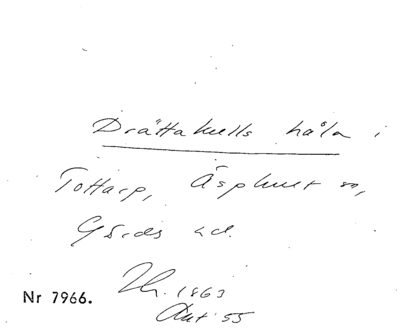 Drättakulls håla i
Tottarp, Äsphult sn,
Gärds hd.
Nr 7966.
1863
55